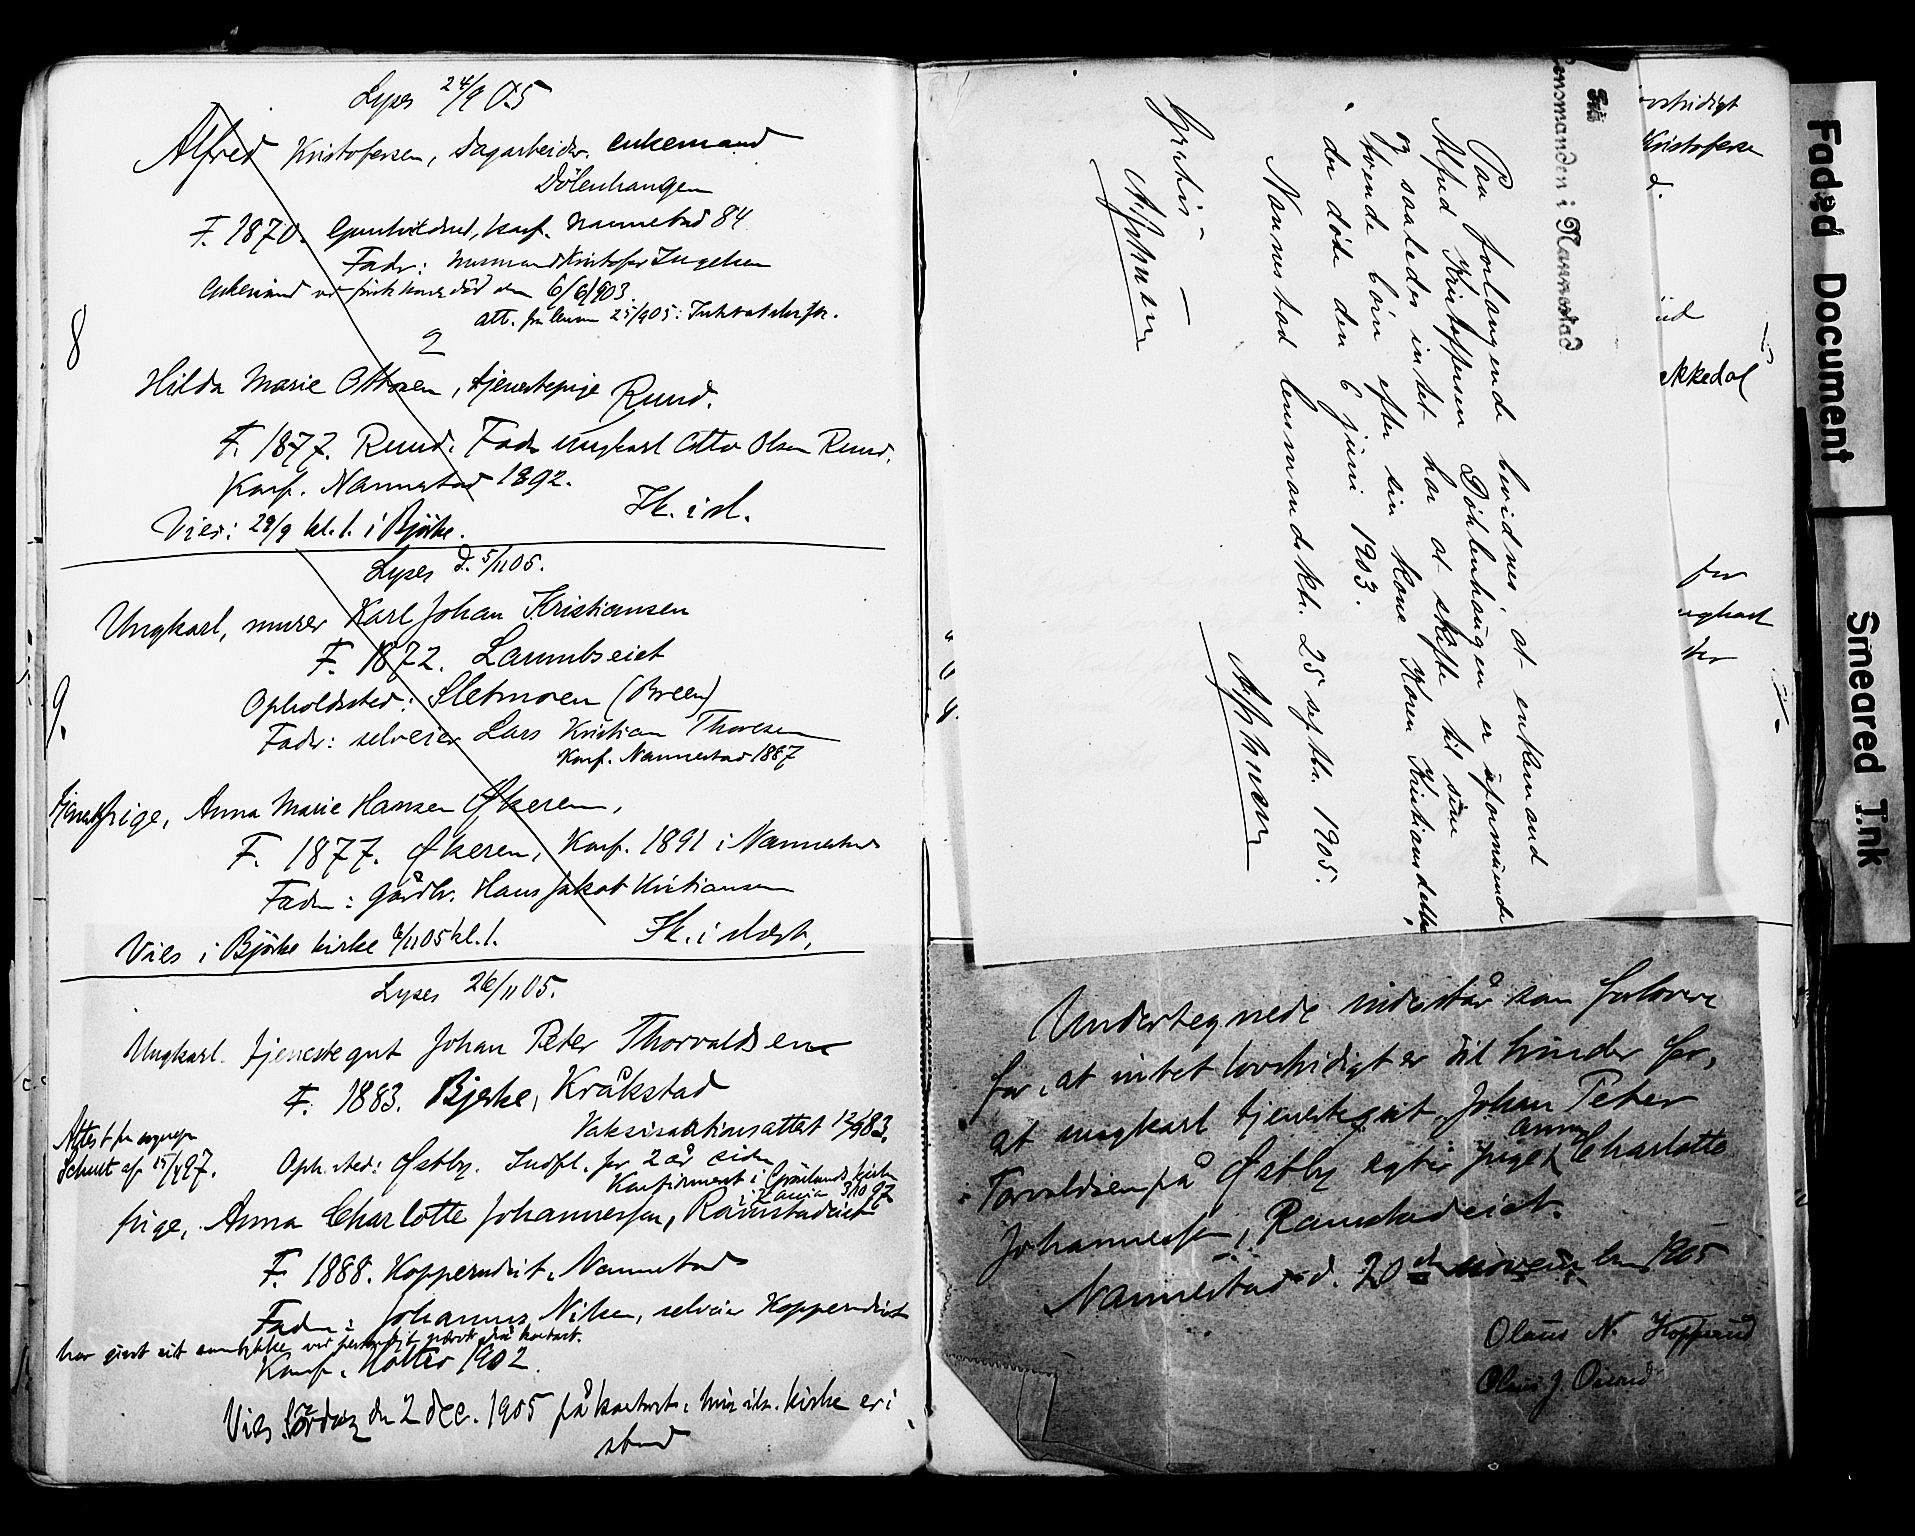 Lyses 24/9 05
Alfred Kristofersen, dagarbeider. enkemand
Dölenhaugen
F. 1870. Gunhildrud, konf. Nannestad 84
Fader: husmand Kristofer Ingelsen
Enkemand ved forste kones död den 6/6 903.
Att. fra lensm 25/9 05:
8
2
Hilda Marie Ottosen, tjenestepige Rund.
F. 1877. Rund. Fader ungkarl Otto Olsen Rund.
Konf. Nannestad 1892.
Vies: 29/9 kl. 1. i Björke.
Lyses d. 5/11 05.
Ungkarl, murer Karl Johan Kristiansen
F. 1872. Larumbseiet
Opholdssted: Sletmoen (Breen)
9.
Fader: selveier Lars Kristian Thoresen
Konf. Nannestad 1887
tjenestepige, Anna Marie Hansen Økeren,
F. 1877. Økeren, Konf. 1891 i Nannestad
Fader: gårdbr. Hans Jakob Kristiansen
Vies i Björke kirke 6/11 05 kl. 1.
Lyses 26/11 05.
Ungkarl. tjenestegut Johan Peter Thorvaldsen
F. 1883. Bjerke, Kråkstad
Vaksinationsattest
Attest fra sogneprest
Schult af 15/4 97.
Oph. sted: Østby. Indfl. for 2 år siden
Konfirmert i Grönlands kirke
i Kania 3/10 97
pige, Anna Charlotte Johannessen, Ramstadeiet
F. 1888. Kopperudeiet, Nannestad
Fader: Johannes Nilsen, selveier Kopperudeiet
har givet sit samtykke ved personligt på kontoret.
Konf. Holter 1902.
Vies lördag den 2 dec. 1905 på kontoret, kirke er i
stand
Lensmanden i Nannestad.
Paa forlangende bevidnes at enkemand
Alfred Kristoffersen Döhlenhaugen er uformuende
og saaledes intet har at skifte til sine
havende börn efter sin kone Karen Kristiansdatter,
der döde den 6 juni 1903.
Nannestad lensmandsktr. 25 septbr. 1905.
Gratis
ovstridigt
Kristoferse
d.
kkedal
for
ungkarl
Undertegnede indestår som forlovere
for, at intet lovstridigt er til hinder for,
at ungkarl tjenestegut Johan Peter
Torvaldsen på Østby egter pige Anna Charlotte
Johannessen, Ramstadeiet.
Nannestad d. 20de november 1905
Olaus N. Kopperud
Olaus J.
Faded Document
Smeared Ink